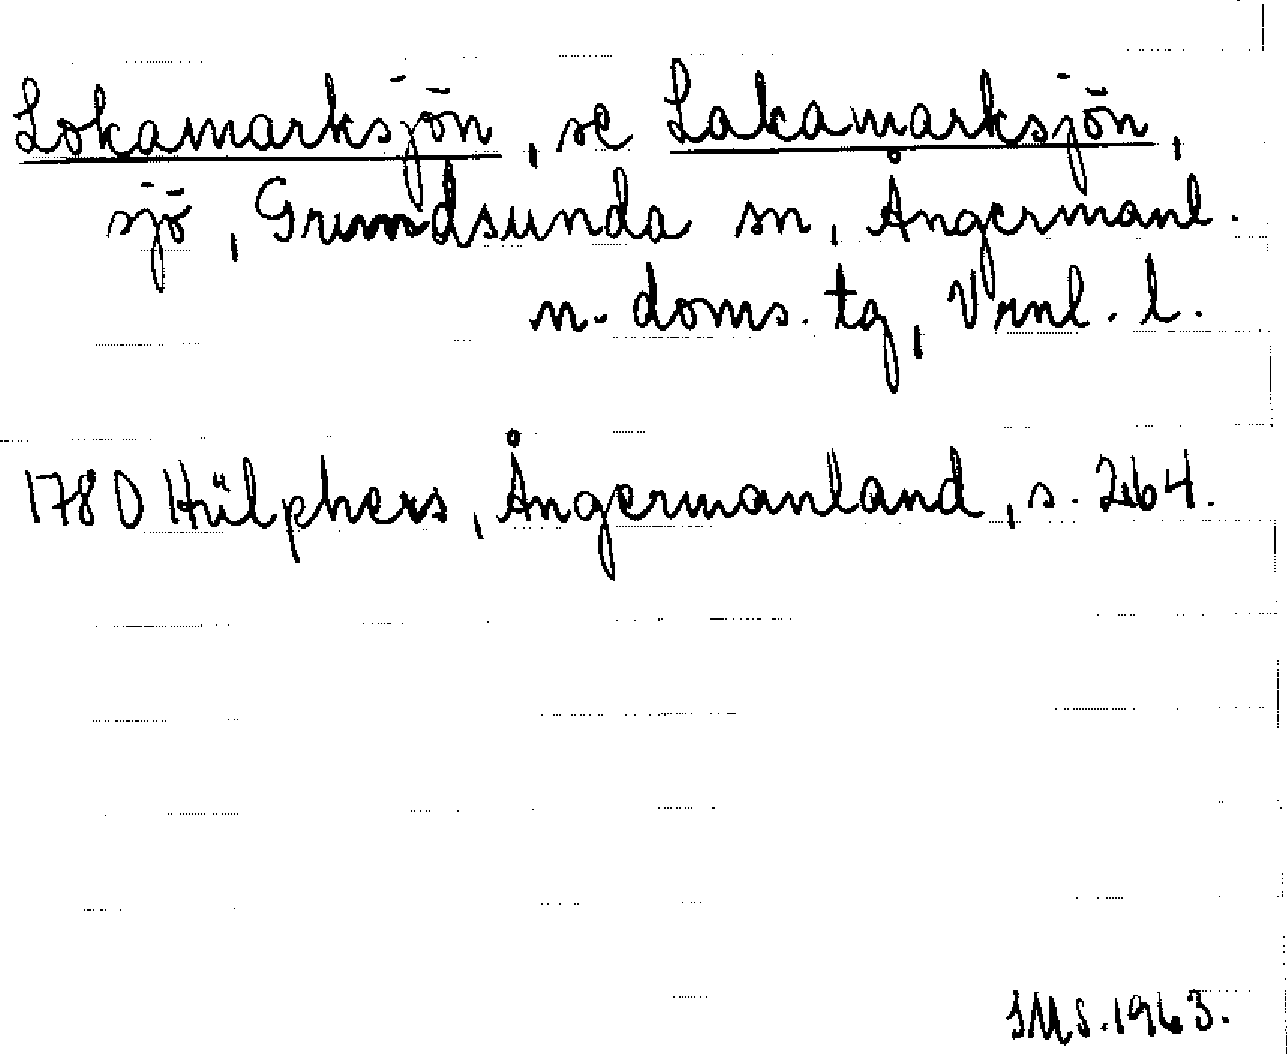 Lokamarksjön, se Lakamarksjön,
sjö, Grundsunda sn, Ångermanl.
n. doms. tg, Vrnl. l.
1780 Hülphers, Ångermanland, s. 264.
SMS. 1963.